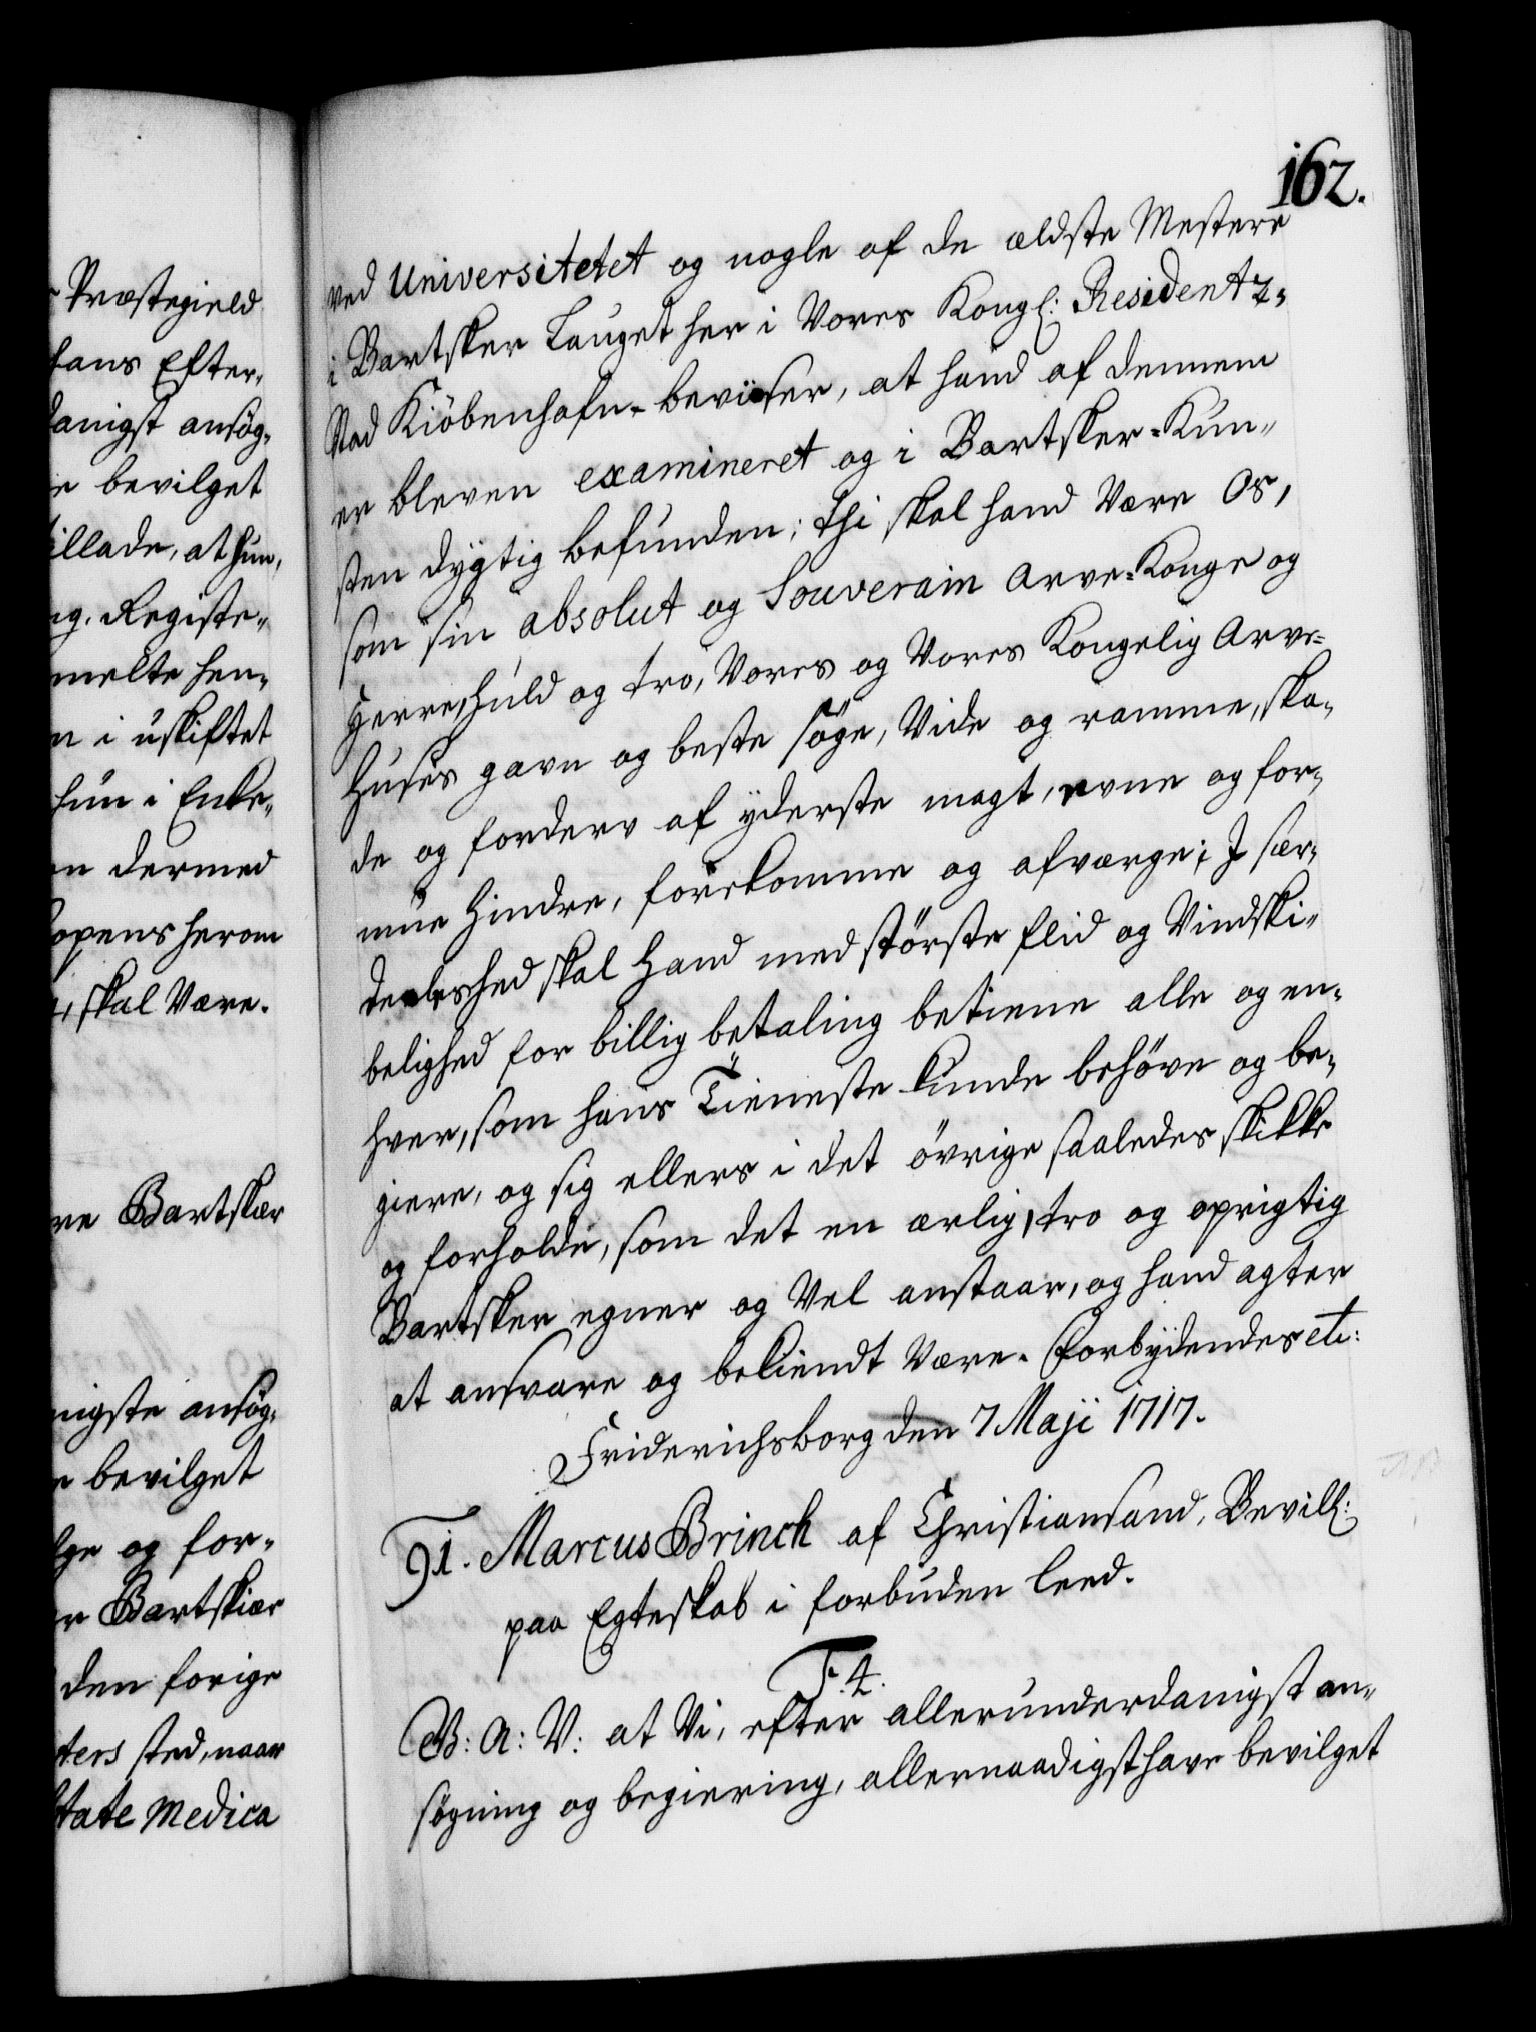 Præstegield
hans Efter„
danigst ansøg„
e bevilget
illade, at hun,
ig. Registe„
melte hen„
n i uskiftet
hun i Enke„
en dermed
opens herom
, skal Være.
re Bartskær
nigste ansøg„
e bevilget
lge og for„
er Bartskiær
den forige
ters sted, naar
ltate Medica
162.
ved Universitetet og nogle af de ældste Mestere
i Bartsker Lauget her i Vores Kongl: Residentz„
Stad Kiöbenhafn beviiser, at hand af dennem
er bleven examineret og i Bartsker-Kun„
sten dygtig befunden; Thi skal hand Være Os,
som sin absolut og Souverain Arve-Konge og
Herre, huld og tro, Vores og Vores Kongelig Arve-
Huses gavn og beste söge, Vide og ramme, ska„
de og forderv af yderste magt, evne og for„
mue hindre, forekomme og afværge; I sær„
deeleshed skal Hand med störste flid og Vindski„
belighed for billig betaling betiene alle og en„
hver, som hans Tieneste kunde behöve og be„
giere, og sig ellers i det övrige saaledes skikke
og forholde, som det en ærlig, tro og oprigtig
Bartsker egner og Vel anstaar, og hand agter
at ansvare og bekiendt Være. Forbydendes etc:
Friderichsborg den 7 Maji 1717.
91. Marcus Brinch af Christiansand, Bevill:
paa Egteskab i forbuden Leed.
F. 4.
G: A: V: at Vi, efter allerunderdanigst an„
søgning og begiering, allernaadigst have bevilget